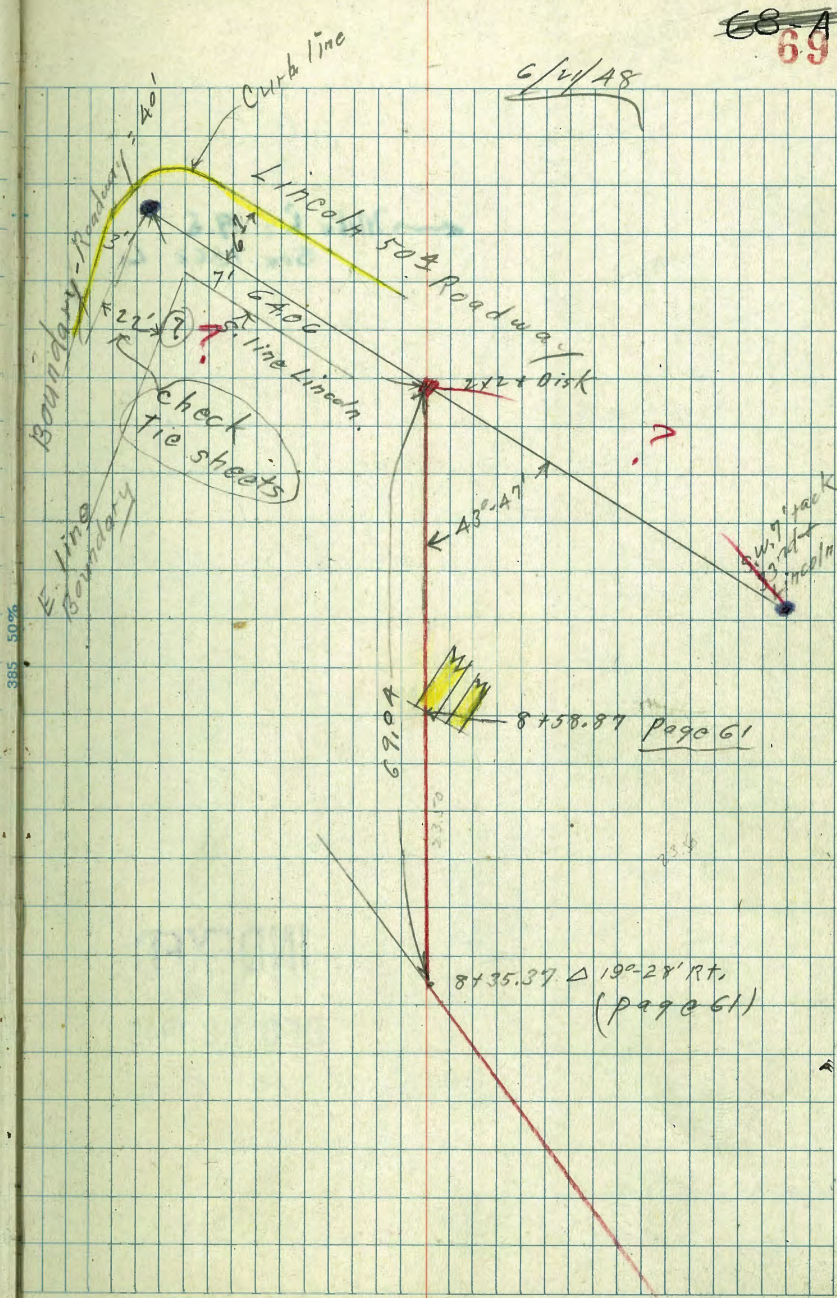 68-A
69
6/21/48
Curb line
Boundary-Roadway = 40'
Lincoln 50' Roadway
3'
7'
64.06
S. line Lincoln.
22'
?
?
check
tie sheets
E. line
Boundary
2x2+ Disk
43°-47'
?
S.W. 7' tack
33rd +
Lincoln
385 50%
69.04
8+58.87 page 61
23.50
23.50
8+35.37 Δ 19°-28' Rt.
(page 61)